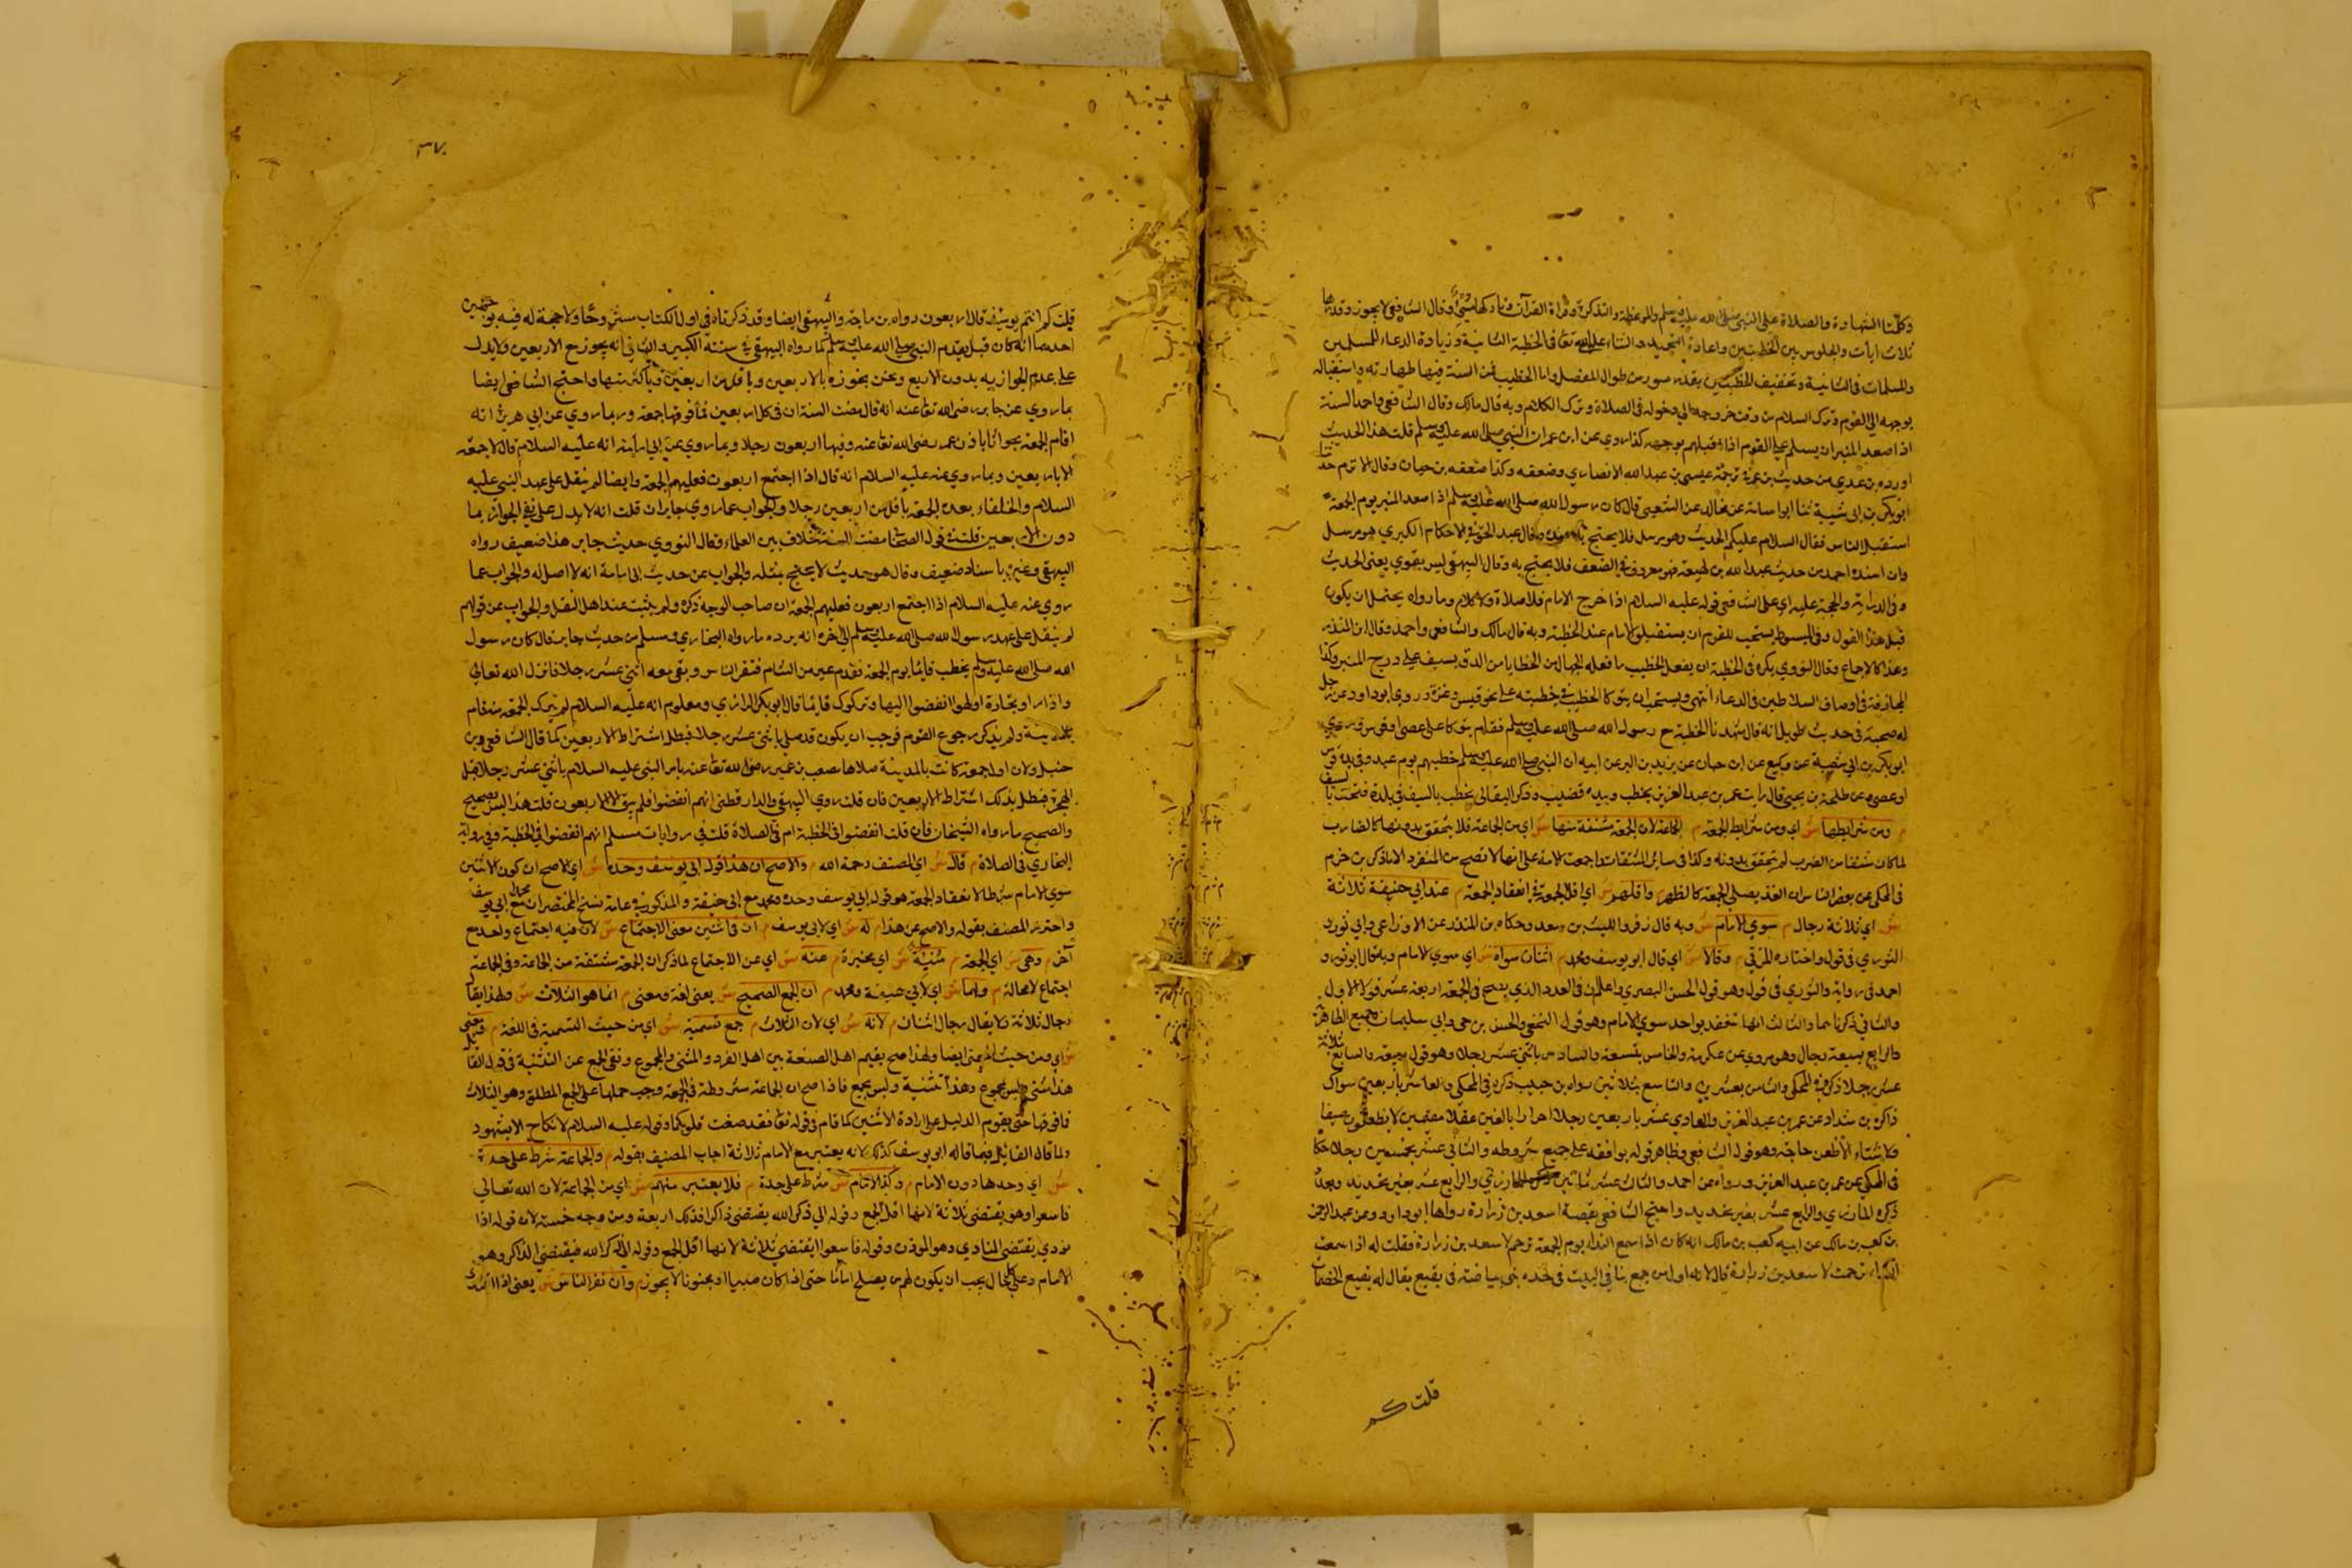 وكلتا الشهادة والصلاة على النبي صلى الله عليه وسلم والموعظة والتذكرة وقراءة القرآن وقال الشافعي لا يجوز وقدرها
ثلاث ايات والجلوس بين الخطبتين واعادة التحميد والثناء على الله تعا في الخطبة الثانية وزيادة الدعاء للمسلمين
والمسلمات في الثانية وتخفيف الخطبتين بقدر سورة من طوال المفصل واما الخطيب فمن السنة فيها طهارته واستقباله
بوجهه الي القوم وترك السلام من وقت خروجه الي دخوله في الصلاة وترك الكلام وبه قال مالك وقال الشافعي واحمد السنة
اذا صعد المنبر ان يسلم علي القوم اذا اقبلهم بوجهه كذا روي عن ابن عمر ان النبي صلى الله عليه وسلم قلت هذا الحديث
اورده بن عدي من حديث بن عمر في ترجمة عيسى بن عبد الله الانصاري وضعفه وكذا ضعفه بن حبان وقال الاثرم حدثنا
ابوبكر بن ابي شيبة ثنا ابو اسامة عن مجالد عن الشعبي قال كان رسول الله صلى الله عليه وسلم اذا صعد المنبر يوم الجمعة
استقبل الناس فقال السلام عليكم الحديث وهو مرسل فلا يحتج به وقال عبد الحق في الاحكام الكبري هو مرسل
وان اسنده احمد من حديث عبد الله بن لهيعة فهو معروف في الضعف فلا يحتج به وقال البيهقي ليس بقوي يعني الحديث
وفي الدراية والحجة عليه اي على الشافعي قوله عليه السلام اذا خرج الامام فلا صلاة ولا كلام وما رواه يحتمل ان يكون
قبل هذا القول وفي المبسوط يستحب للقوم ان يستقبلوا الامام عند الخطبة وبه قال مالك والشافعي واحمد وقال ابن المنذر
وهذا كالاجماع وقال النووي يكره في الخطبة ان يفعل الخطيب ما فعله الجهال من الخطباء من الدق بسيف على درج المنبر وكذا
المجازفة في اوصاف السلاطين في الدعاء انتهى ويستحب ان يتوكا الخطيب في خطبته على نحو قوس وعنزة وروي ابوداود عن رجل
له صحبة في حديث طويل انه قال شهدنا الخطبة مع رسول الله صلى الله عليه وسلم فقام يتوكا على عصي او قوس
ابوبكر بن ابي شيبة عن وكيع عن ابن حبان عن يزيد بن البر عن ابيه ان النبي صلى الله عليه وسلم خطبهم يوم عيد وفي يده قوس
او عصي وعن طلحة بن يحيى قال رايت عمر بن عبد العزيز يخطب وبيده قضيب وذكر البقالي يخطب بالسيف في بلدة فتحت بالسيف
م ومن شرايطها ش اي ومن شرايط الجمعة م الجماعة لان الجمعة مشتقة منها ش اي من الجماعة فلا يتحقق بدونها كالضارب
لما كان مشتقا من الضرب لم يتحقق بدونه وكذا في سائر المشتقات واجمعت الامة على انها لا تصح من المنفرد الا ما ذكر بن حزم
في المحلى عن بعض الناس ان الفذ يصلي الجمعة كالظهر م واقلهم ش اي اقل الجمع في انعقاد الجمعة م عند ابي حنيفة ثلاثة
ش اي ثلاثة رجال م سوي الامام ش وبه قال زفر والليث بن سعد وحكاه بن المنذر عن الاوزاعي وابي ثور و
الثوري في قول واختاره المزني م وقالا ش اي قال ابو يوسف ومحمد م اثنان سواه ش اي سوي الامام وبه قال ابو ثور و
احمد في رواية والثوري في قول وهو قول الحسن البصري واعلم ان في العدد الذي يصح في الجمعة اربعة عشر قولا الاول
والثاني ذكرناهما والثالث انها تنعقد بواحد سوي الامام وهو قول النخعي والحسن بن حي وابي سليمان وجميع الظاهرية
والرابع بسبعة رجال وهو مروي عن عكرمة والخامس بتسعة والسادس باثني عشر رجلا وهو قول ربيعة والسابع بثلاثة
عشر رجلا ذكره في المحلى والثامن بعشرين والتاسع بثلاثين رواه بن حبيب ذكره في المحلى والعاشر باربعين سواك
ذكره بن شداد عن عمر بن عبد العزيز والحادي عشر باربعين رجلا احرارا بالغين عقلا مقيمين لا يظعنون صيفا
ولا شتاء الا ظعن حاجة وهو قول الشافعي وظاهر قوله يوافقه على جميع شروطه والثاني عشر بخمسين رجلا حكاه
في المحلى عن عمر بن عبد العزيز ورواه عن احمد والثالث عشر بثمانين المازري والرابع عشر بغير تحديد
ذكره المازري والرابع عشر بغير تحديد واحتج الشافعي بقصة اسعد بن زرارة رواها ابو داود وعن عبد الرحمن
بن كعب بن مالك عن ابيه كعب بن مالك انه كان اذا سمع النداء يوم الجمعة ترحم لاسعد بن زرارة فقلت له اذا سمعت
النداء ترحمت لاسعد بن زرارة قال لانه اول من جمع بنا في البيت في حره بني بياضة في بقيع يقال له بقيع الخضمات
قلت كم
٣٧٠
قلت كم انتم يومئذ قال اربعون رواه بن ماجة والبيهقي ايضا وقد ذكرناه في اول الكتاب مشروحا ولا حجة له فيه بوجهين
احدهما انه كان قبل مقدم النبي صلى الله عليه وسلم كما رواه البيهقي في سننه الكبير والثاني انه يجوز مع الاربعين ولا يدل
على عدم الجواز به بدون الاربع ونحن نجوزه بالاربعين وباقل من اربعين وباكثر منها واحتج الشافعي ايضا
بما روي عن جابر رضى الله تعا عنه انه قال مضت السنة ان في كل اربعين فما فوقها جمعة وربما روي عن ابي هريرة انه
اقام الجمعة بجواثا باذن عمر رضى الله تعا عنه وفيها اربعون رجلا وبما روي عن ابي امامة انه عليه السلام قال لا جمعة
الا باربعين وبما روي عنه عليه السلام انه قال اذا اجتمع اربعون فعليهم الجمعة وايضا لم ينقل على عهد النبي عليه
السلام والخلفاء بعده الجمعة باقل من اربعين رجلا والجواب عما روي جابر ان قلت انه لا يدل على نفي الجواز بما
دون الاربعين قلت في قول الصحابي مضت السنة خلاف بين العلماء وقال النووي حديث جابر هذا ضعيف رواه
البيهقي وغيره باسناد ضعيف وقال هو حديث لا يحتج بمثله والجواب عن حديث ابي امامة انه لا اصل له والجواب عما
روي عنه عليه السلام اذا اجتمع اربعون فعليهم الجمعة ان صاحب الوجيز ذكره ولم يثبت عند اهل النقل والجواب عن قولهم
لم ينقل على عهد رسول الله صلى الله عليه وسلم الي اخره انه يرده ما رواه البخاري ومسلم من حديث جابر قال كان رسول
الله صلى الله عليه وسلم يخطب قايما يوم الجمعة فقدم عير من الشام فنفر الناس وبقي معه اثني عشر رجلا فانزل الله تعالى
واذا راو تجارة او لهوا انفضوا اليها وتركوك قايما قال ابوبكر الرازي ومعلوم انه عليه السلام لم يترك الجمعة منذ قام
بالمدينة ولم يذكر رجوع القوم فوجب ان يكون قد صلى باثني عشر رجلا فبطل اشتراط الاربعين كما قال الشافعي وبن
حنبل ولان اول جمعة كانت بالمدينة صلاها مصعب بن عمير رضى الله تعا عنه بامر النبي عليه السلام باثني عشر رجلا قبل
الهجرة فبطل بذلك اشتراط الاربعين فان قلت روي البيهقي والدارقطني انهم انفضوا فلم يبق الا اربعون قلت هذا ليس بصحيح
والصحيح ما رواه الشيخان فان قلت انفضوا في الخطبة ام في الصلاة قلت في روايات مسلم انهم انفضوا في الخطبة وفي رواية
البخاري في الصلاة م قال ش اي المصنف رحمه الله م والاصح ان هذا قول ابي يوسف وحده ش اي الاصح ان كون الاثنين
سوي الامام شرطا لانعقاد الجمعة هو قول ابي يوسف وحده ومحمد مع ابي حنيفة والمذكور في عامة نسخ المختصر ان محمدا مع ابي يوسف
واحترز المصنف بقوله والاصح عن هذا م له ش اي لابي يوسف م ان في اثنين معنى الاجتماع ش لان فيه اجتماع واحد مع
آخر م وهى ش اي الجمعة م منبئة ش اي مخبرة م عنه ش اي عن الاجتماع لما ذكر ان الجمعة مشتقة من الجماعة وفي الجماعة
اجتماع لا محالة م ولهما ش اي لابي حنيفة ومحمد م ان الجمع الصحيح ش يعني لغة ومعنى م انما هو الثلاث ش ولهذا يقال
رجال ثلاثة ولا يقال رجال اثنان م لانه ش اي لان الثلاث م جمع تسمية ش اي من حيث التسمية في اللغة م
ش اي ومن حيث المعنى ايضا ولهذا صح تقسيم اهل الصنعة بين اهل الفرد والمثنى والمجموع ونفى الجمع عن التثنية في قول القائل
هذا مثنى وليس بجموع وهذا تثنية وليس بجمع فاذا صح ان الجماعة شروطه في الجمعة وجب حملها على الجمع المطلق وهو الثلاث
فما فوقها حتى يقوم الدليل على ارادة الاثنين كما قام في قوله تعا فقد صغت قلوبكما وقوله عليه السلام لا نكاح الا بشهود
ولما قال القائل فيما قاله ابو يوسف كذلك لانه يعتبر مع الامام ثلاثة اجاب المصنف بقوله م والجماعة شرط على حدة
ش اي وحدها دون الامام م وكذا الامام ش شرط على حدة م فلا يعتبر منهم ش اي من الجماعة لان الله تعالى
فاسعوا وهو يقتضي ثلاثة لانها اقل الجمع وقوله الي ذكر الله يقتضي ذاكرا فذلك اربعة ومن وجه خمسة لان قوله اذا
نودي يقتضي المنادي وهو الموذن وقوله فاسعوا يقتضي ثلاثة لانها اقل الجمع وقوله الي ذكر الله فيقتضي الذاكر وهو
الامام وعلى كل حال يجب ان يكون لهم من يصلح اماما حتى اذا كان صبيا او مجنونا لا يجوز م وان نفر الناس ش يعني اذا